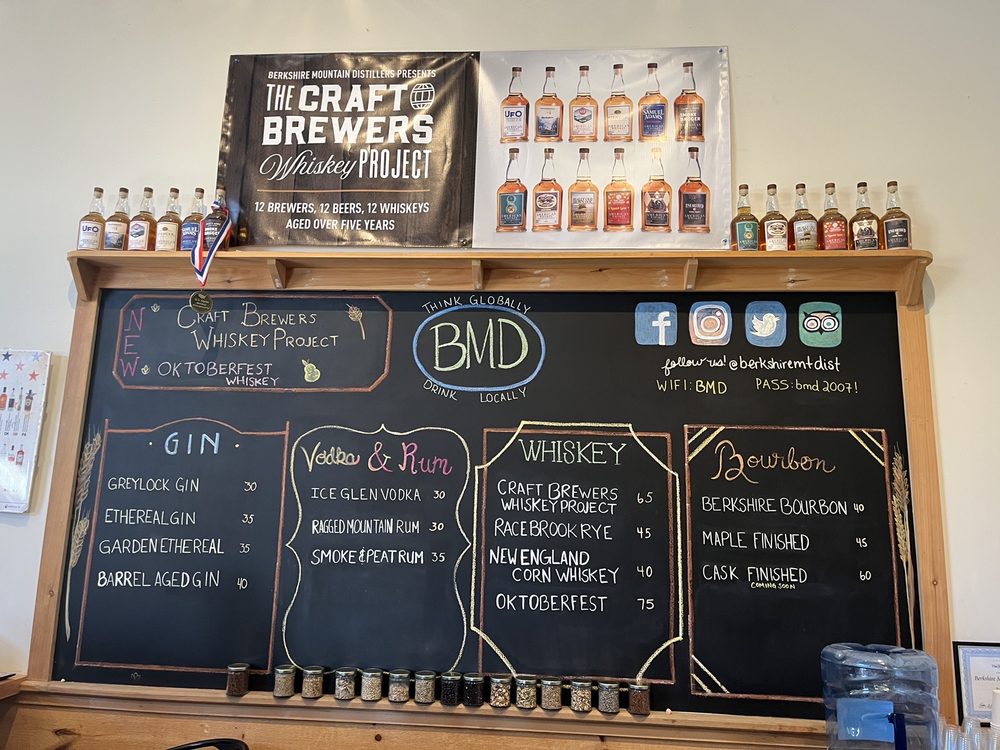 BERKSHIRE MOUNTAIN DISTILLERS PRESENTS
THE CRAFT
BREWERS
Whiskey PROJECT
12 BREWERS, 12 BEERS, 12 WHISKEYS
AGED OVER FIVE YEARS
UFO
SAMUEL ADAMS
SMOKE & DAGGER
UFO
NEW
CRAFT BREWERS
WHISKEY PROJECT
OKTOBERFEST
WHISKEY
THINK GLOBALLY
BMD
DRINK LOCALLY
f
follow us! @berkshiremtdist
WIFI: BMD PASS: bmd2007!
GIN
GREYLOCK GIN 30
ETHEREAL GIN 35
GARDEN ETHEREAL 35
BARREL AGED GIN 40
Vodka & Rum
ICE GLEN VODKA 30
RAGGED MOUNTAIN RUM 30
SMOKE & PEAT RUM 35
WHISKEY
CRAFT BREWERS
WHISKEY PROJECT 65
RACEBROOK RYE 45
NEW ENGLAND
CORN WHISKEY 40
OKTOBERFEST 75
Bourbon
BERKSHIRE BOURBON 40
MAPLE FINISHED 45
CASK FINISHED 60
COMING SOON